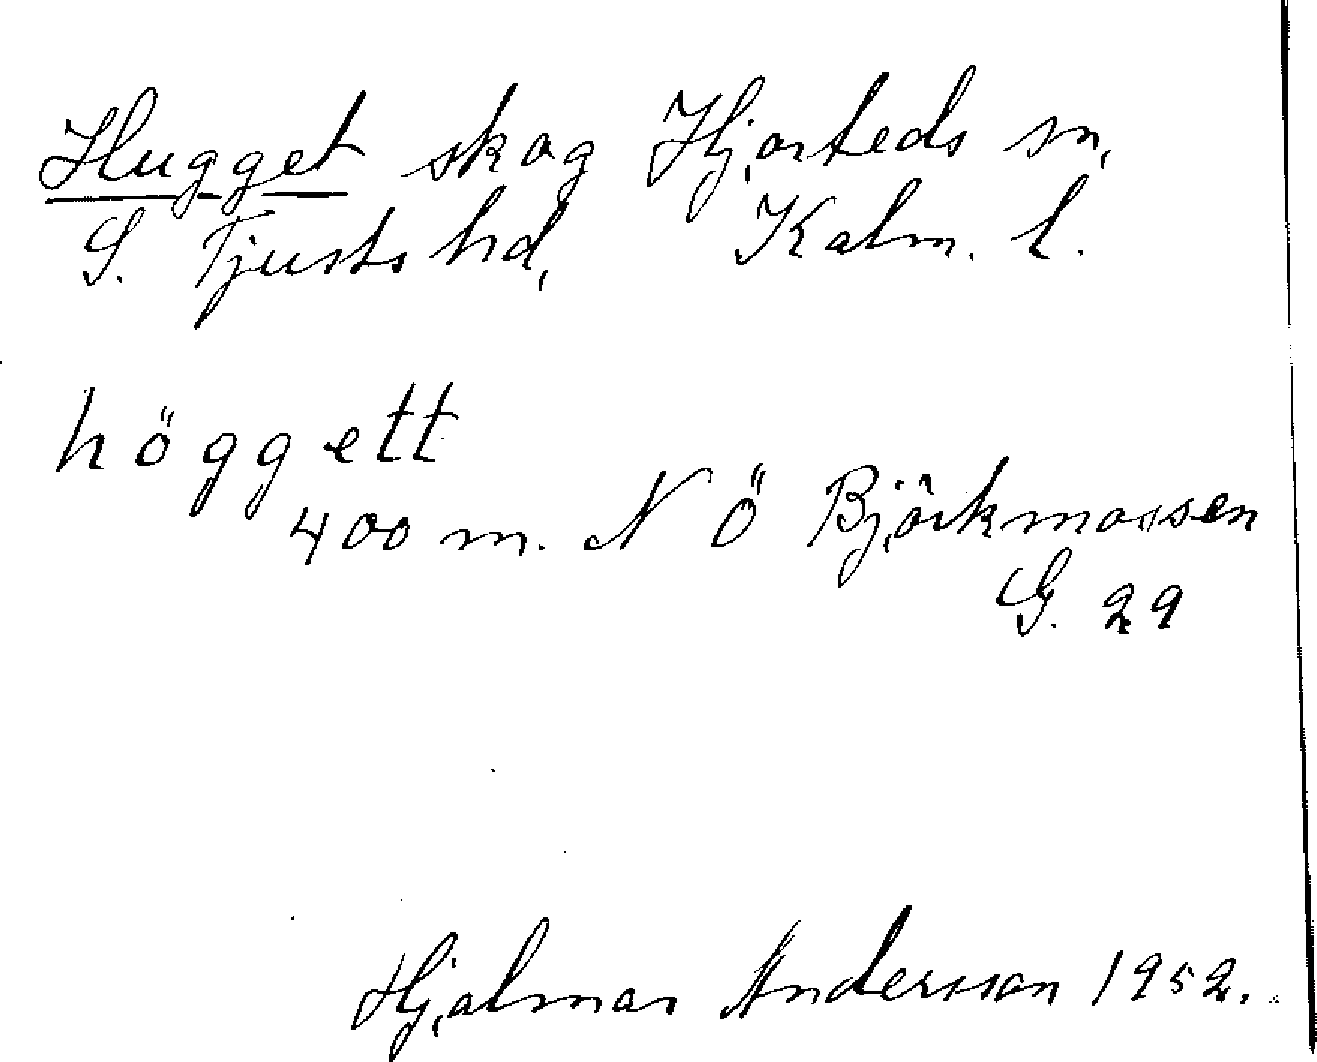 Hugget skog Hjorteds sn,
S. Tjusts hd, Kalm. l.
höggett
400 m. N Ö Björkmossen
G. 29
Hjalmar Andersson 1952.